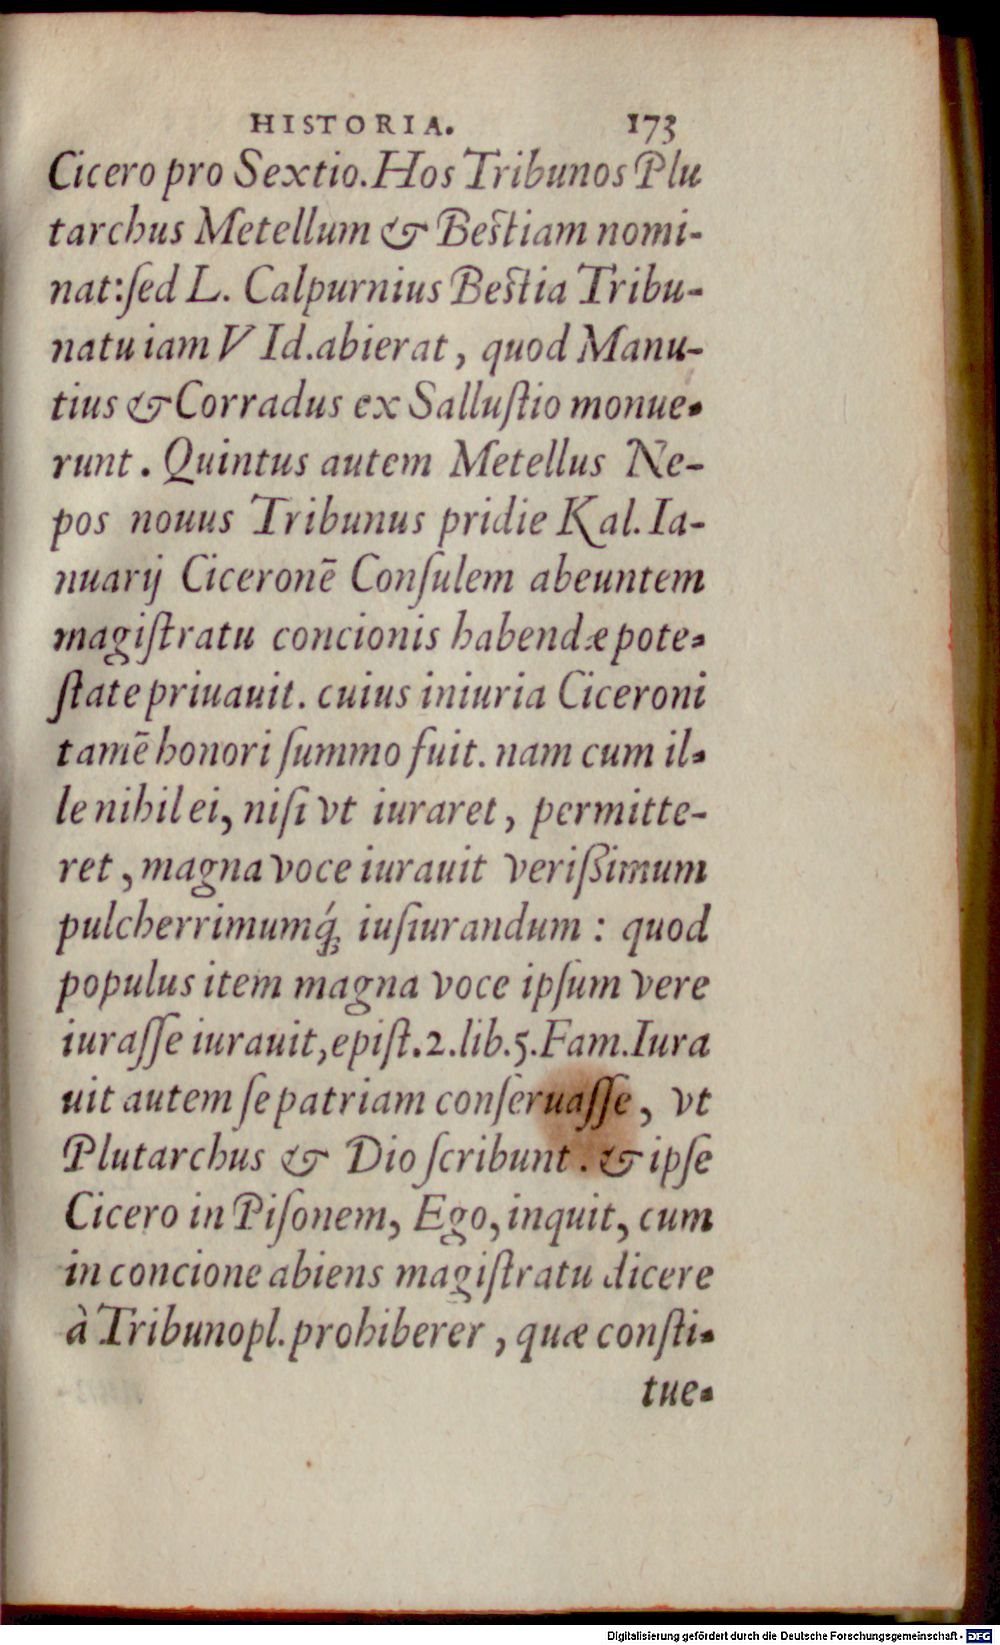 HISTORIA. 173
Cicero pro Sextio. Hos Tribunos Plu
tarchus Metellum & Bestiam nomi-
nat: ſed L. Calpurnius Bestia Tribu-
natu iam V Id. abierat, quod Manu-
tius & Corradus ex Salluſtio monue-
runt. Quintus autem Metellus Ne-
pos nouus Tribunus pridie Kal. Ia-
nuarij Ciceronē Conſulem abeuntem
magiſtratu concionis habendæ pote-
ſtate priuauit. cuius iniuria Ciceroni
tamē honori ſummo fuit. nam cum il-
le nihil ei, niſi vt iuraret, permitte-
ret, magna voce iurauit verißimum
pulcherrimumq́; iuſiurandum: quod
populus item magna voce ipſum vere
iuraſſe iurauit, epiſt. 2. lib. 5. Fam. Iura
uit autem ſe patriam conſeruaſſe, vt
Plutarchus & Dio ſcribunt. & ipſe
Cicero in Piſonem, Ego, inquit, cum
in concione abiens magiſtratu dicere
à Tribuno pl. prohiberer, quæ conſti-
tue-
Digitalisierung gefördert durch die Deutsche Forschungsgemeinschaft - DFG